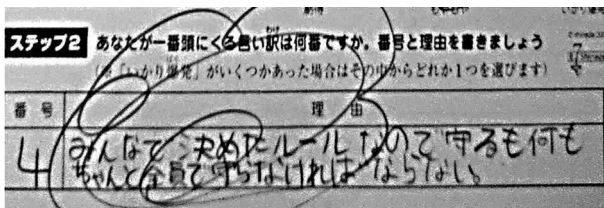 ステップ2 あなたが一番頭にくる言い訳は何番ですか。番号と理由を書きましょう
(※「いかり爆発」がいくつかあった場合はその中からどれか1つを選びます)
番号 理由
4 みんなで決めたルールなので守るも何も
ちゃんと全員で守らなければならない。